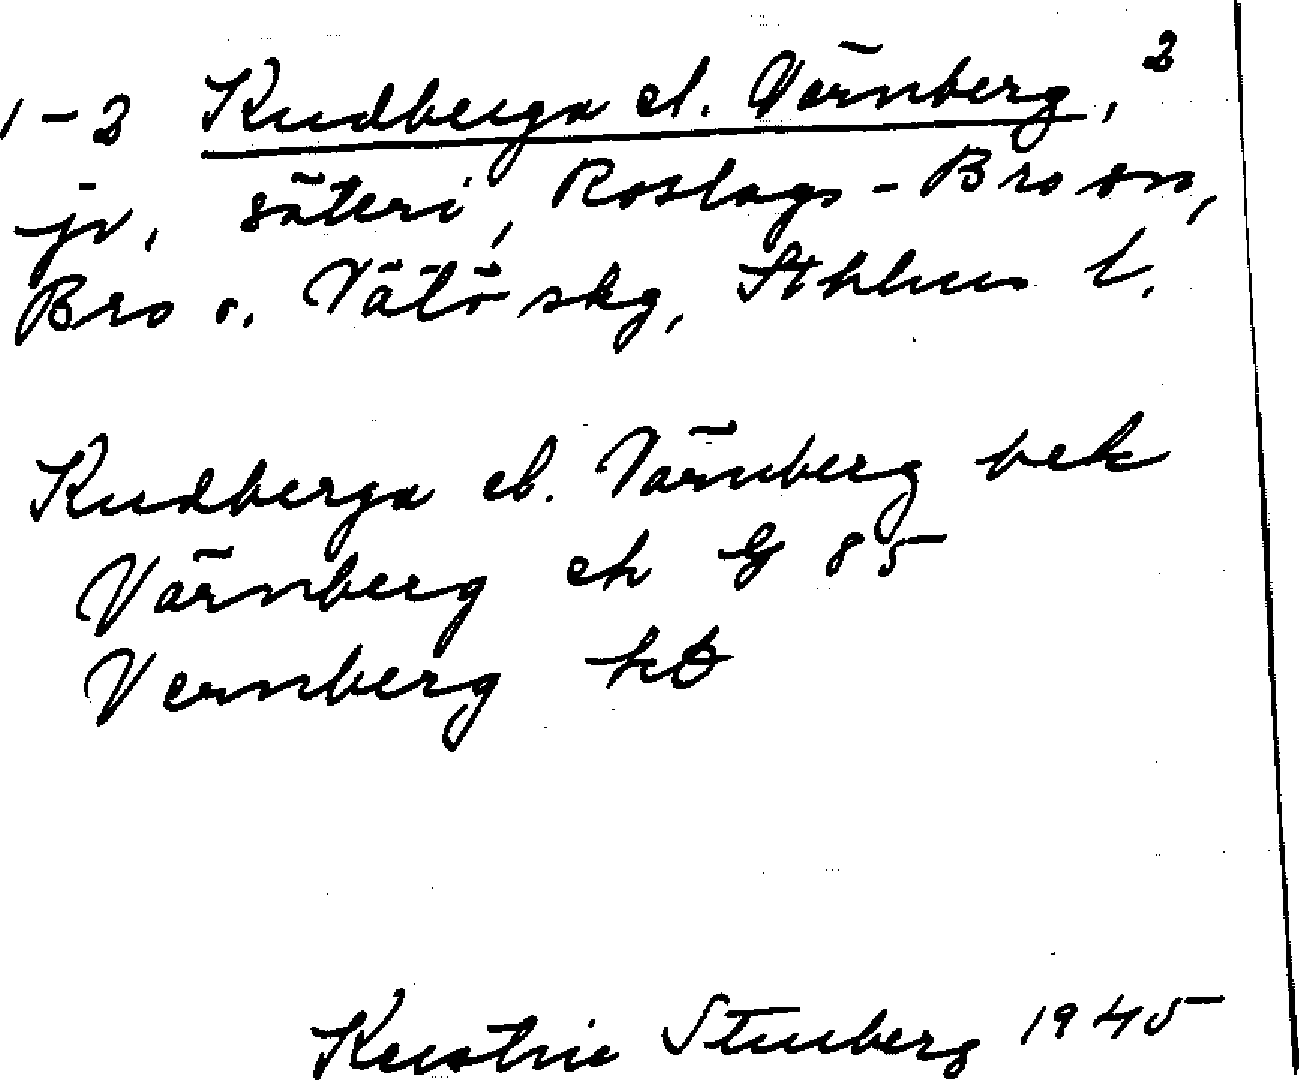 1-2 Kudberga el. Värnberg, 2
jv, säteri, Roslags-Bro sn,
Bro o. Vätö skg, Sthlms l.
Kudberga el. Värnberg bek
Värnberg ek G 85
Vernberg kb
Kerstin Stenberg 1945